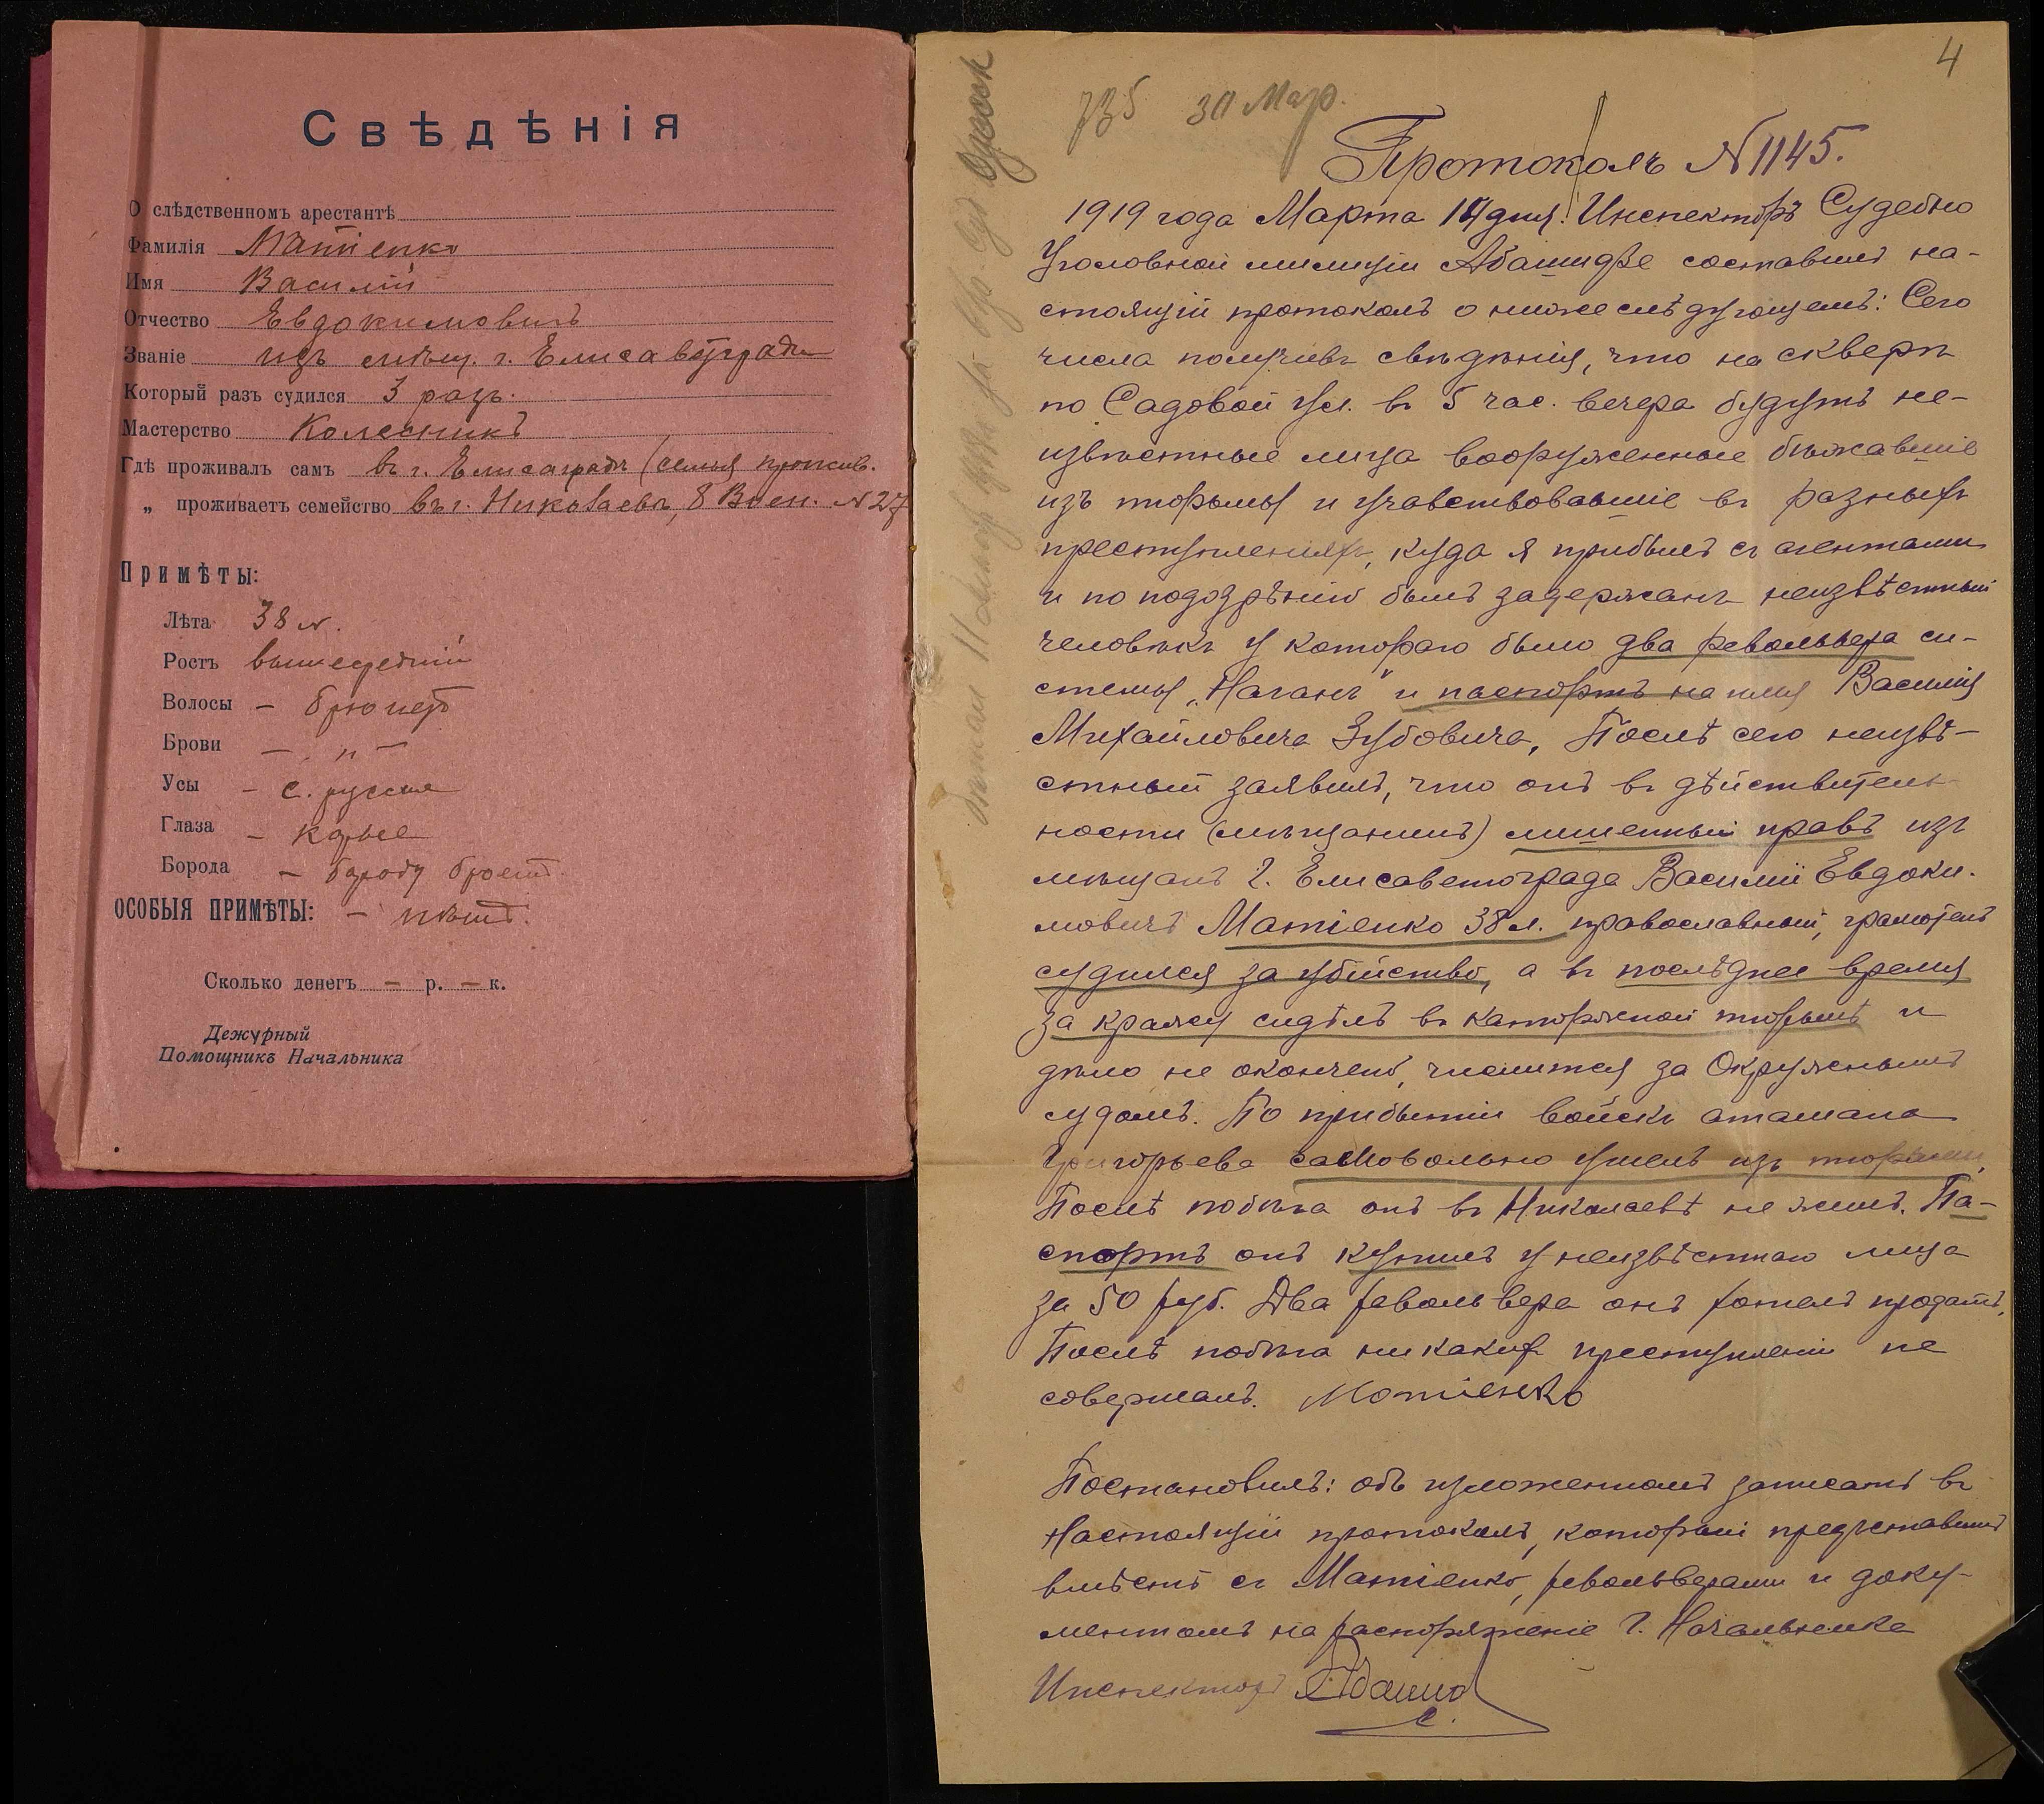 Свѣдѣнія
О слѣдственномъ арестантѣ
Фамилія Матіенко
Имя Василій
Отчество Евдокимовичъ
Званіе изъ мѣщ. г. Елисаветграда
Который разъ судился 3 разъ.
Мастерство Колесникъ
Гдѣ проживалъ самъ въ г. Елисаградѣ (семья прожив.
„ проживаетъ семейство въ г. Николаевѣ, 8 Воен. №27
Примѣты:
Лѣта 38 л.
Ростъ вышесредній
Волосы – брюнетъ
Брови – „ –
Усы – с. русые
Глаза – карые
Борода – бороду брѣетъ.
ОСОБЫЯ ПРИМѢТЫ: – нѣтъ.
Сколько денегъ – р. – к.
Дежурный
Помощникъ Начальника
4
735 30 Мар.
Протоколъ №1145.
1919 года Марта 14 дня. Инспекторъ Судебно
Уголовной милиціи Абашидзе составилъ на-
стоящій протоколъ о нижеслѣдующемъ: Сего
числа получивъ свѣдѣнія, что на скверѣ
по Садовой ул. въ 5 час. вечера будутъ не-
извѣстные лица вооруженные бѣжавшіе
изъ тюрьмы и учавствовавшіе въ разныхъ
преступленіяхъ, куда я прибылъ съ агентами
и по подозрѣнію былъ задержанъ неизвѣстный
человѣкъ у котораго было два револьвера си-
стемы „Наганъ" и паспортъ на имя Василія
Михайловича Зубовича, Послѣ сего неизвѣ-
стный заявилъ, что онъ въ дѣйствитель-
ности (мѣщанинъ) лишенный правъ изъ
мѣщанъ г. Елисаветограда Василій Евдоки-
мовичъ Матіенко 38 л. православный, грамотенъ
судился за убійство, а въ послѣднее время
за кражу сидѣлъ въ каторжной тюрьмѣ и
дѣло не окончено, числится за Окружнымъ
судомъ. По прибытіи войскъ атамана
Григорьева самовольно ушелъ изъ тюрьмы,
Послѣ побѣга онъ въ Николаевѣ не жилъ. Па-
спортъ онъ купилъ у неизвѣстнаго лица
за 50 руб. Два револьвера онъ хотелъ продать,
Послѣ побѣга никакихъ преступленій не
совершалъ. Матіенко
Постановилъ: объ изложенномъ записать въ
настоящій протоколъ, который представить
вмѣстѣ съ Матіенко, револьверами и доку-
ментомъ на распоряженіе Г. Начальника
Инспекторъ